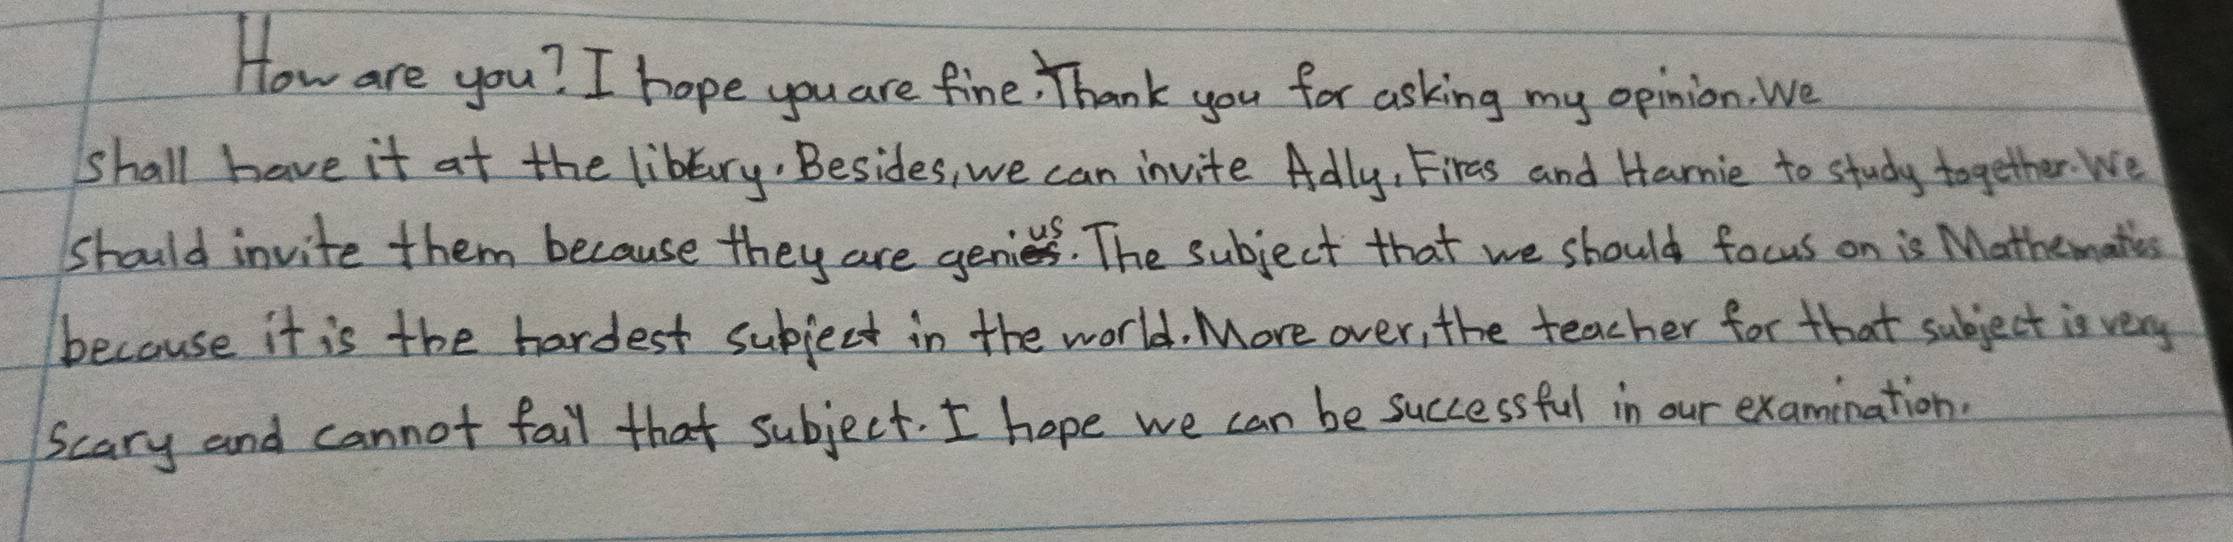 How are you? I hope you are fine. Thank you for asking my opinion. We
shall have it at the library. Besides, we can invite Adly, Firas and Harnie to study together. We
should invite them because they are genius. The subject that we should focus on is Mathematics
because it is the hardest subject in the world. More over, the teacher for that subject is very
scary and cannot fail that subject. I hope we can be successful in our examination.